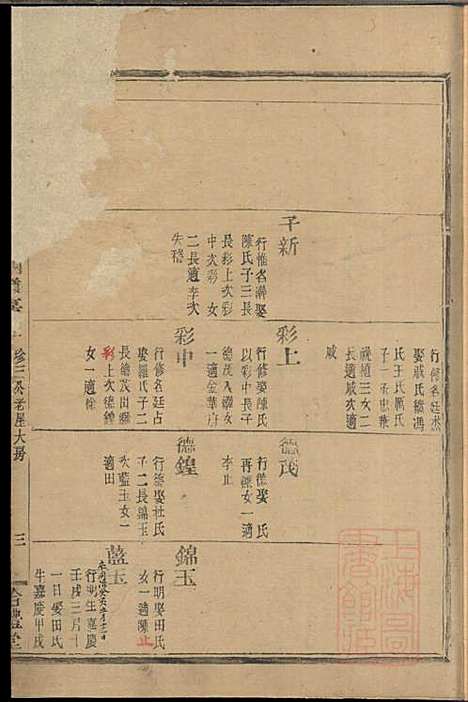 子新
行惟名濟娶
陳氏子三長
長彩上次彩
中次彩 女
二長適李次
失稽
行修名廷
娶戚氏續馮
氏王氏厲氏
子一承忠兼
祧女三女二
長適戚次適
戚
彩上
行修娶陳氏
以彩中長子
德茂入繼女
一適金華
彩中
行修名廷占
娶羅氏子二
長德茂出繼
彩上次德鍠
女一適徐
德茂
行德娶 氏
再娶 女一適
李止
德鍠
行德娶杜氏
子二長錦玉
次藍玉女一
適田
錦玉
行明娶田氏
女一適陳止
藍玉
行明生嘉慶
壬戌三月十
一日娶田氏
生嘉慶甲戌
珍三公老屋大房
三